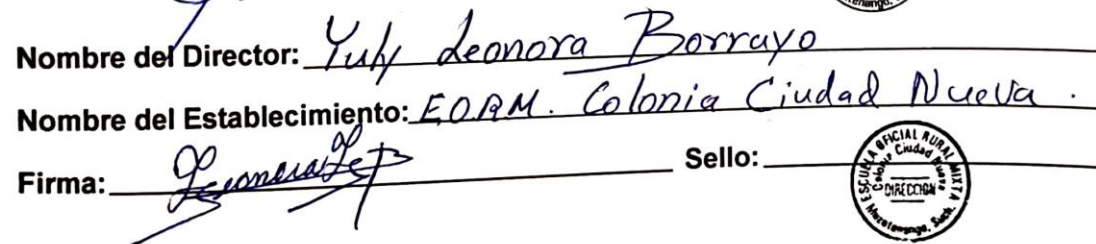 Nombre del Director: Yuly Leonora Borrayo
Nombre del Establecimiento: E.O.R.M. Colonia Ciudad Nueva.
Firma:
Sello:
ESCUELA OFICIAL RURAL MIXTA
Colonia Ciudad Nueva
DIRECCION
Mazatenango, Such.